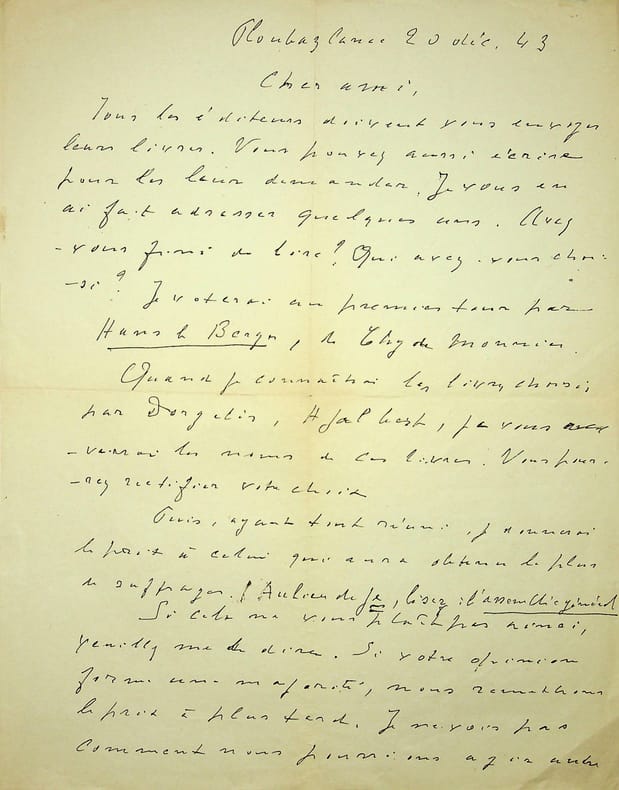 Ploubazlanec 20 déc. 43
Cher ami,
Tous les éditeurs doivent vous envoyer
leurs livres. Vous pouvez aussi écrire
pour les leur demander. Je vous en
ai fait adresser quelques uns. Avez
-vous fini de lire? Qui avez-vous choi-
-si? Je voterai au premier tour par
Hans le Berger, de Thyde Monnier.
Quand je connaîtrai les livres choisis
par Dorgelès, Jalbert, je vous
-verrai les noms de ces livres. Vous pour-
-rez rectifier votre choix
Puis, ayant tout réuni, je donnerai
le prix à celui qui aura obtenu le plus
de suffrages. (Au lieu de je, lisez: l'assemblée générale
Si cela ne vous plaît pas ainsi,
veuillez me le dire. Si votre opinion
forme une majorité, nous remettrons
le prix à plus tard. Je ne vois pas
comment nous pourrions agir autre